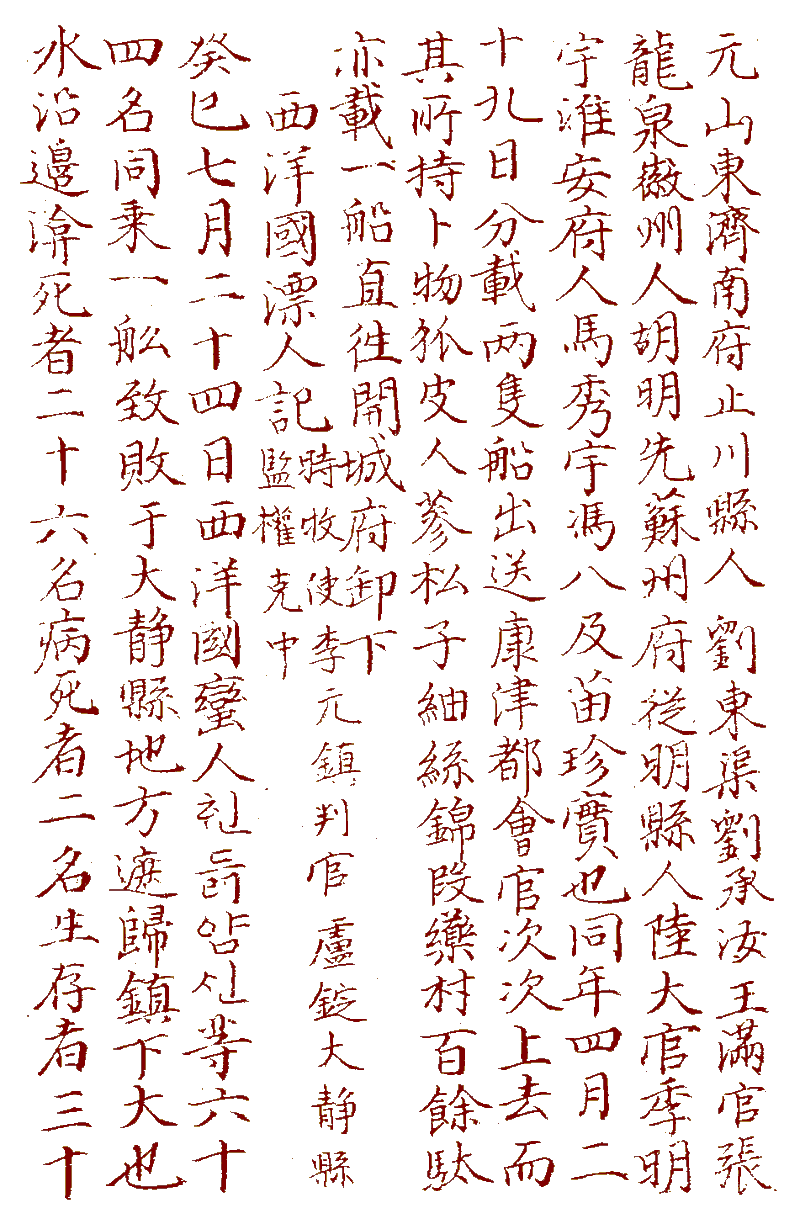 元山東濟南府止川縣人劉東渠劉承汝王滿官張
龍泉徽州人胡明先蘇州府從明縣人陸大官季明
宇淮安府人馬秀宇馮八及苗珍實也同年四月二
十九日分載两隻船出送康津都會官次次上去而
其所持卜物狐皮人蔘松子細絲錦段藥村百餘駄
亦載一船直徃開城府卸下
西洋國漂人記
時牧使李元鎮判官盧錠大静縣
監權克中
癸巳七月二十四日西洋國蠻人헌듥얌신等六十
四名同乗一舩致敗于大静縣地方遮歸鎮下大也
水沿邊渰死者二十六名病死者二名生存者三十